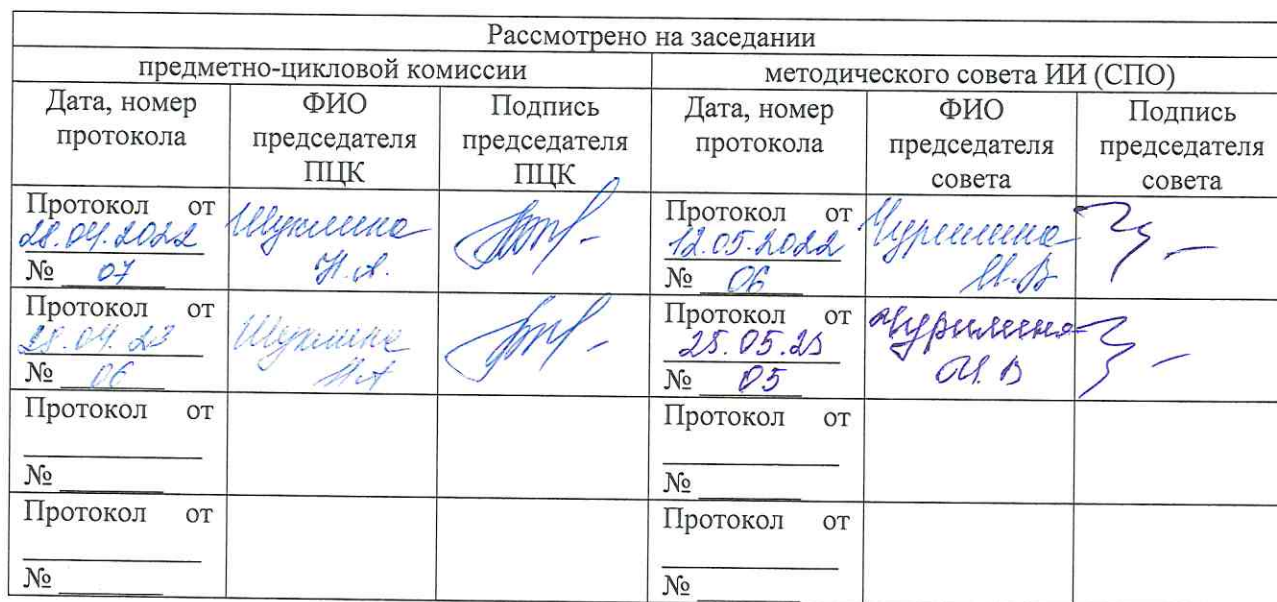 Рассмотрено на заседании
предметно-цикловой комиссии
методического совета ИИ (СПО)
Дата, номер
протокола
ФИО
председателя
ПЦК
Подпись
председателя
ПЦК
Дата, номер
протокола
ФИО
председателя
совета
Подпись
председателя
совета
Протокол от
28.04.2022
№ 07
Шуклина
Н.А.
Протокол от
12.05.2022
№ 06
Чурилина
И.В
Протокол от
№ 06
Шуклина
Н.А
Протокол от
25.05.23
№ 05
Чурилина
И.В
Протокол от
№
Протокол от
№
Протокол от
№
Протокол от
№